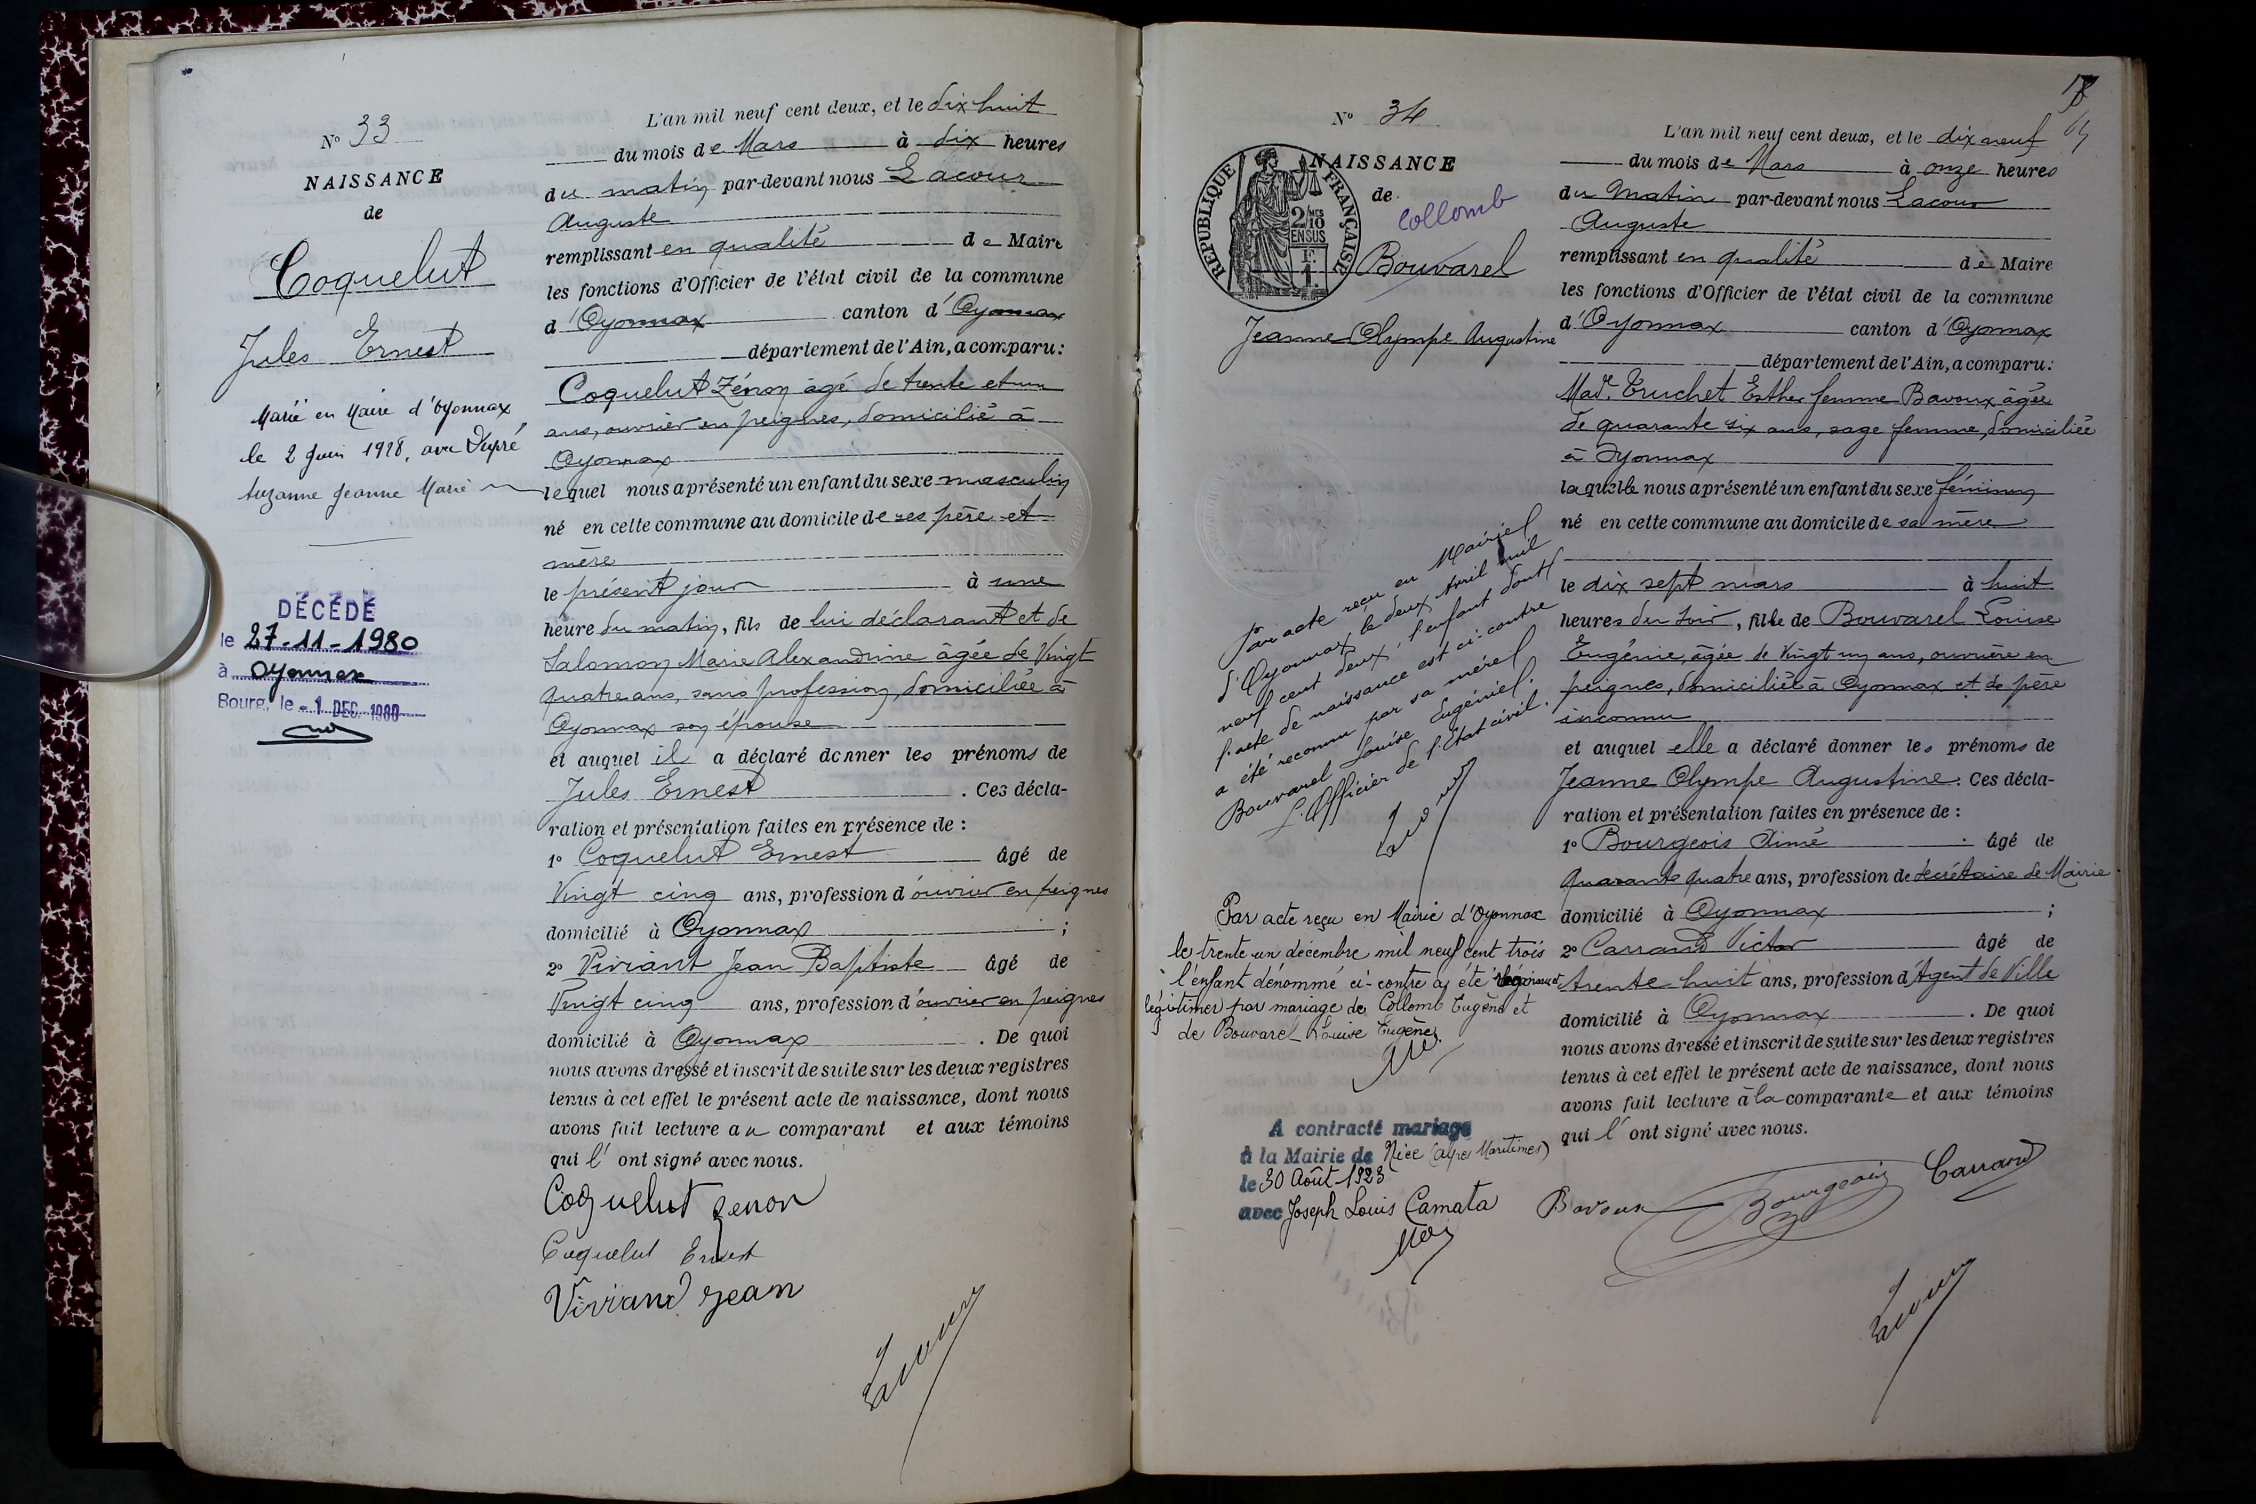 N° 33
NAISSANCE
de
Coquelut
Jules Ernest
Marié en Mairie d'Oyonnax
le 2 Juin 1928, avec Dupré
Suzanne Jeanne Marie
DÉCÉDÉ
le 27-11-1980
à Oyonnax
Bourg, le - 1 DEC. 1980
L'an mil neuf cent deux, et le dix huit
du mois de Mars à dix heures
du matin par-devant nous Lacour
Auguste
remplissant en qualité de Maire
les fonctions d'Officier de l'état civil de la commune
d'Oyonnax canton d'Oyonnax
département de l'Ain, a comparu:
Coquelut Zénon âgé de trente et un
ans, ouvrier en peignes, domicilié à
Oyonnax
lequel nous a présenté un enfant du sexe masculin
né en cette commune au domicile de ses père et
mère
le présent jour à une
heure du matin, fils de lui déclarant et de
Salomon Marie Alexandrine âgée de Vingt
quatre ans, sans profession, domiciliée à
Oyonnax son épouse
et auquel il a déclaré donner les prénoms de
Jules Ernest . Ces décla-
ration et présentation faites en présence de :
1° Coquelut Ernest âgé de
Vingt cinq ans, profession d'ouvrier en peignes
domicilié à Oyonnax ;
2° Viviant Jean Baptiste âgé de
Vingt cinq ans, profession d'ouvrier en peignes
domicilié à Oyonnax . De quoi
nous avons dressé et inscrit de suite sur les deux registres
tenus à cet effet le présent acte de naissance, dont nous
avons fait lecture au comparant et aux témoins
qui l' ont signé avec nous.
Coquelut Zenon
Coquelut Ernest
Viviand Jean
Lacour
N° 34
NAISSANCE
de
REPUBLIQUE FRANÇAISE
2/10 MES
EN SUS
1 F.
Collomb
Bouvarel
Jeanne Olympe Augustine
Par acte reçu en Mairie
d'Oyonnax le deux Avril mil
neuf cent deux, l'enfant dont
l'acte de naissance est ci-contre
a été reconnu par sa mère
Bouvarel Louise Eugénie.
L'Officier de l'Etat civil.
Lacour
Par acte reçu en Mairie d'Oyonnax
le trente un décembre mil neuf cent trois
l'enfant dénommé ci-contre a été
légitimer par mariage de Collomb Eugène et
de Bouvarel Louise Eugène
A contracté mariage
à la Mairie de Nice (Alpes Maritimes)
le 30 Août 1923
avec Joseph Louis Camata
L'an mil neuf cent deux, et le dix neuf
du mois de Mars à onze heures
du Matin par-devant nous Lacour
Auguste
remplissant en qualité de Maire
les fonctions d'Officier de l'état civil de la commune
d'Oyonnax canton d'Oyonnax
département de l'Ain, a comparu:
Mad. Truchet Esther femme Bavoux âgée
de quarante six ans, sage femme, domiciliée
à Oyonnax
laquelle nous a présenté un enfant du sexe féminin
né en cette commune au domicile de sa mère
le dix sept mars à huit
heures du soir, fille de Bouvarel Louise
Eugénie, âgée de Vingt un ans, ouvrière en
peignes, domiciliée à Oyonnax et de père
inconnu
et auquel elle a déclaré donner les prénoms de
Jeanne Olympe Augustine. Ces décla-
ration et présentation faites en présence de :
1° Bourgeois Aimé âgé de
Quarante quatre ans, profession de Secrétaire de Mairie
domicilié à Oyonnax ;
2° Carrand Victor âgé de
trente huit ans, profession d'Agent de Ville
domicilié à Oyonnax . De quoi
nous avons dressé et inscrit de suite sur les deux registres
tenus à cet effet le présent acte de naissance, dont nous
avons fait lecture à la comparante et aux témoins
qui l' ont signé avec nous.
Bavoux Bourgeois Carrand
Lacour